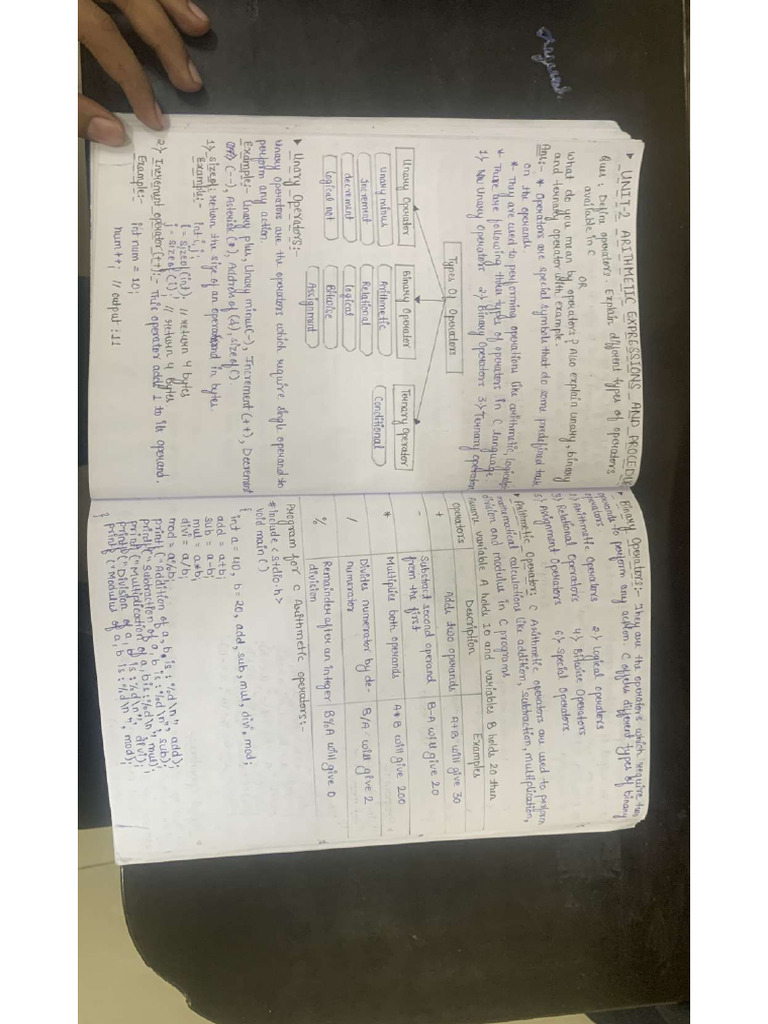 ▸ UNIT-2 ARITHMETIC EXPRESSIONS AND PROCEDU
Ques: Define operators. Explain different types of operators
available in C
OR
What do you mean by operators? Also explain unary, binary
and ternary operator with example.
Ans:- * Operators are special symbols that do some predefined task
on the operands.
* They are used to performing operations like arithmetic, logical
* There are following these types of operators in C language.
1) Unary Operators 2) Binary Operators 3) Ternary Operator
Types Of Operators
Unary Operator Binary Operator Ternary Operator
Unary minus Arithmetic Conditional
Increment Relational
decrement logical
logical not Bitwise
Assignment
▸ Unary Operators:-
Unary Operators are the operators which require single operand to
perform any action.
Example:- Unary plus, Unary minus(-), Increment(++), Decrement
(--), Asterisk(*), Address of (&), sizeof().
1) sizeof: return the size of an operand in bytes.
Example:- int i;
i = sizeof(int); // return 4 bytes
j = sizeof(i); // return 4 bytes
2) Increment operator(++):- This operator adds 1 to its operand.
Example:- int num = 10;
num++; // output: 11
▸ Binary Operators:- They are the operators which require two
operands to perform any action. C offers different types of binary
operators
1) Arithmetic operators 2) logical operators
3) Relational Operators 4) Bitwise Operators
5) Assignment Operators 6) Special Operators
▸ Arithmetic Operators: C Arithmetic operators are used to perform
mathematical calculations like addition, subtraction, multiplication,
division and modulus in C programs
Assume variable A holds 10 and variables B holds 20 then
Operators Description Examples
+ Adds two operands A+B will give 30
- Substract second operand B-A will give 20
from the first
* Multiplies both operands A*B will give 200
/ Divides numerator by de- B/A will give 2
numerator
% Remainder after an integer B%A will give 0
division
Program for C Arithmetic operators:-
#include <stdio.h>
void main()
{
int a = 40, b = 20, add, sub, mul, div, mod;
add = a+b;
sub = a-b;
mul = a*b;
divi = a/b;
mod = a%b;
printf("Addition of a, b is : %d\n", add);
printf("Subtraction of a, b is : %d\n", sub);
printf("Multiplication of a, b is : %d\n", mul);
printf("Division of a, b is : %d\n", divi);
printf("Modulus of a, b is : %d\n", mod);
}